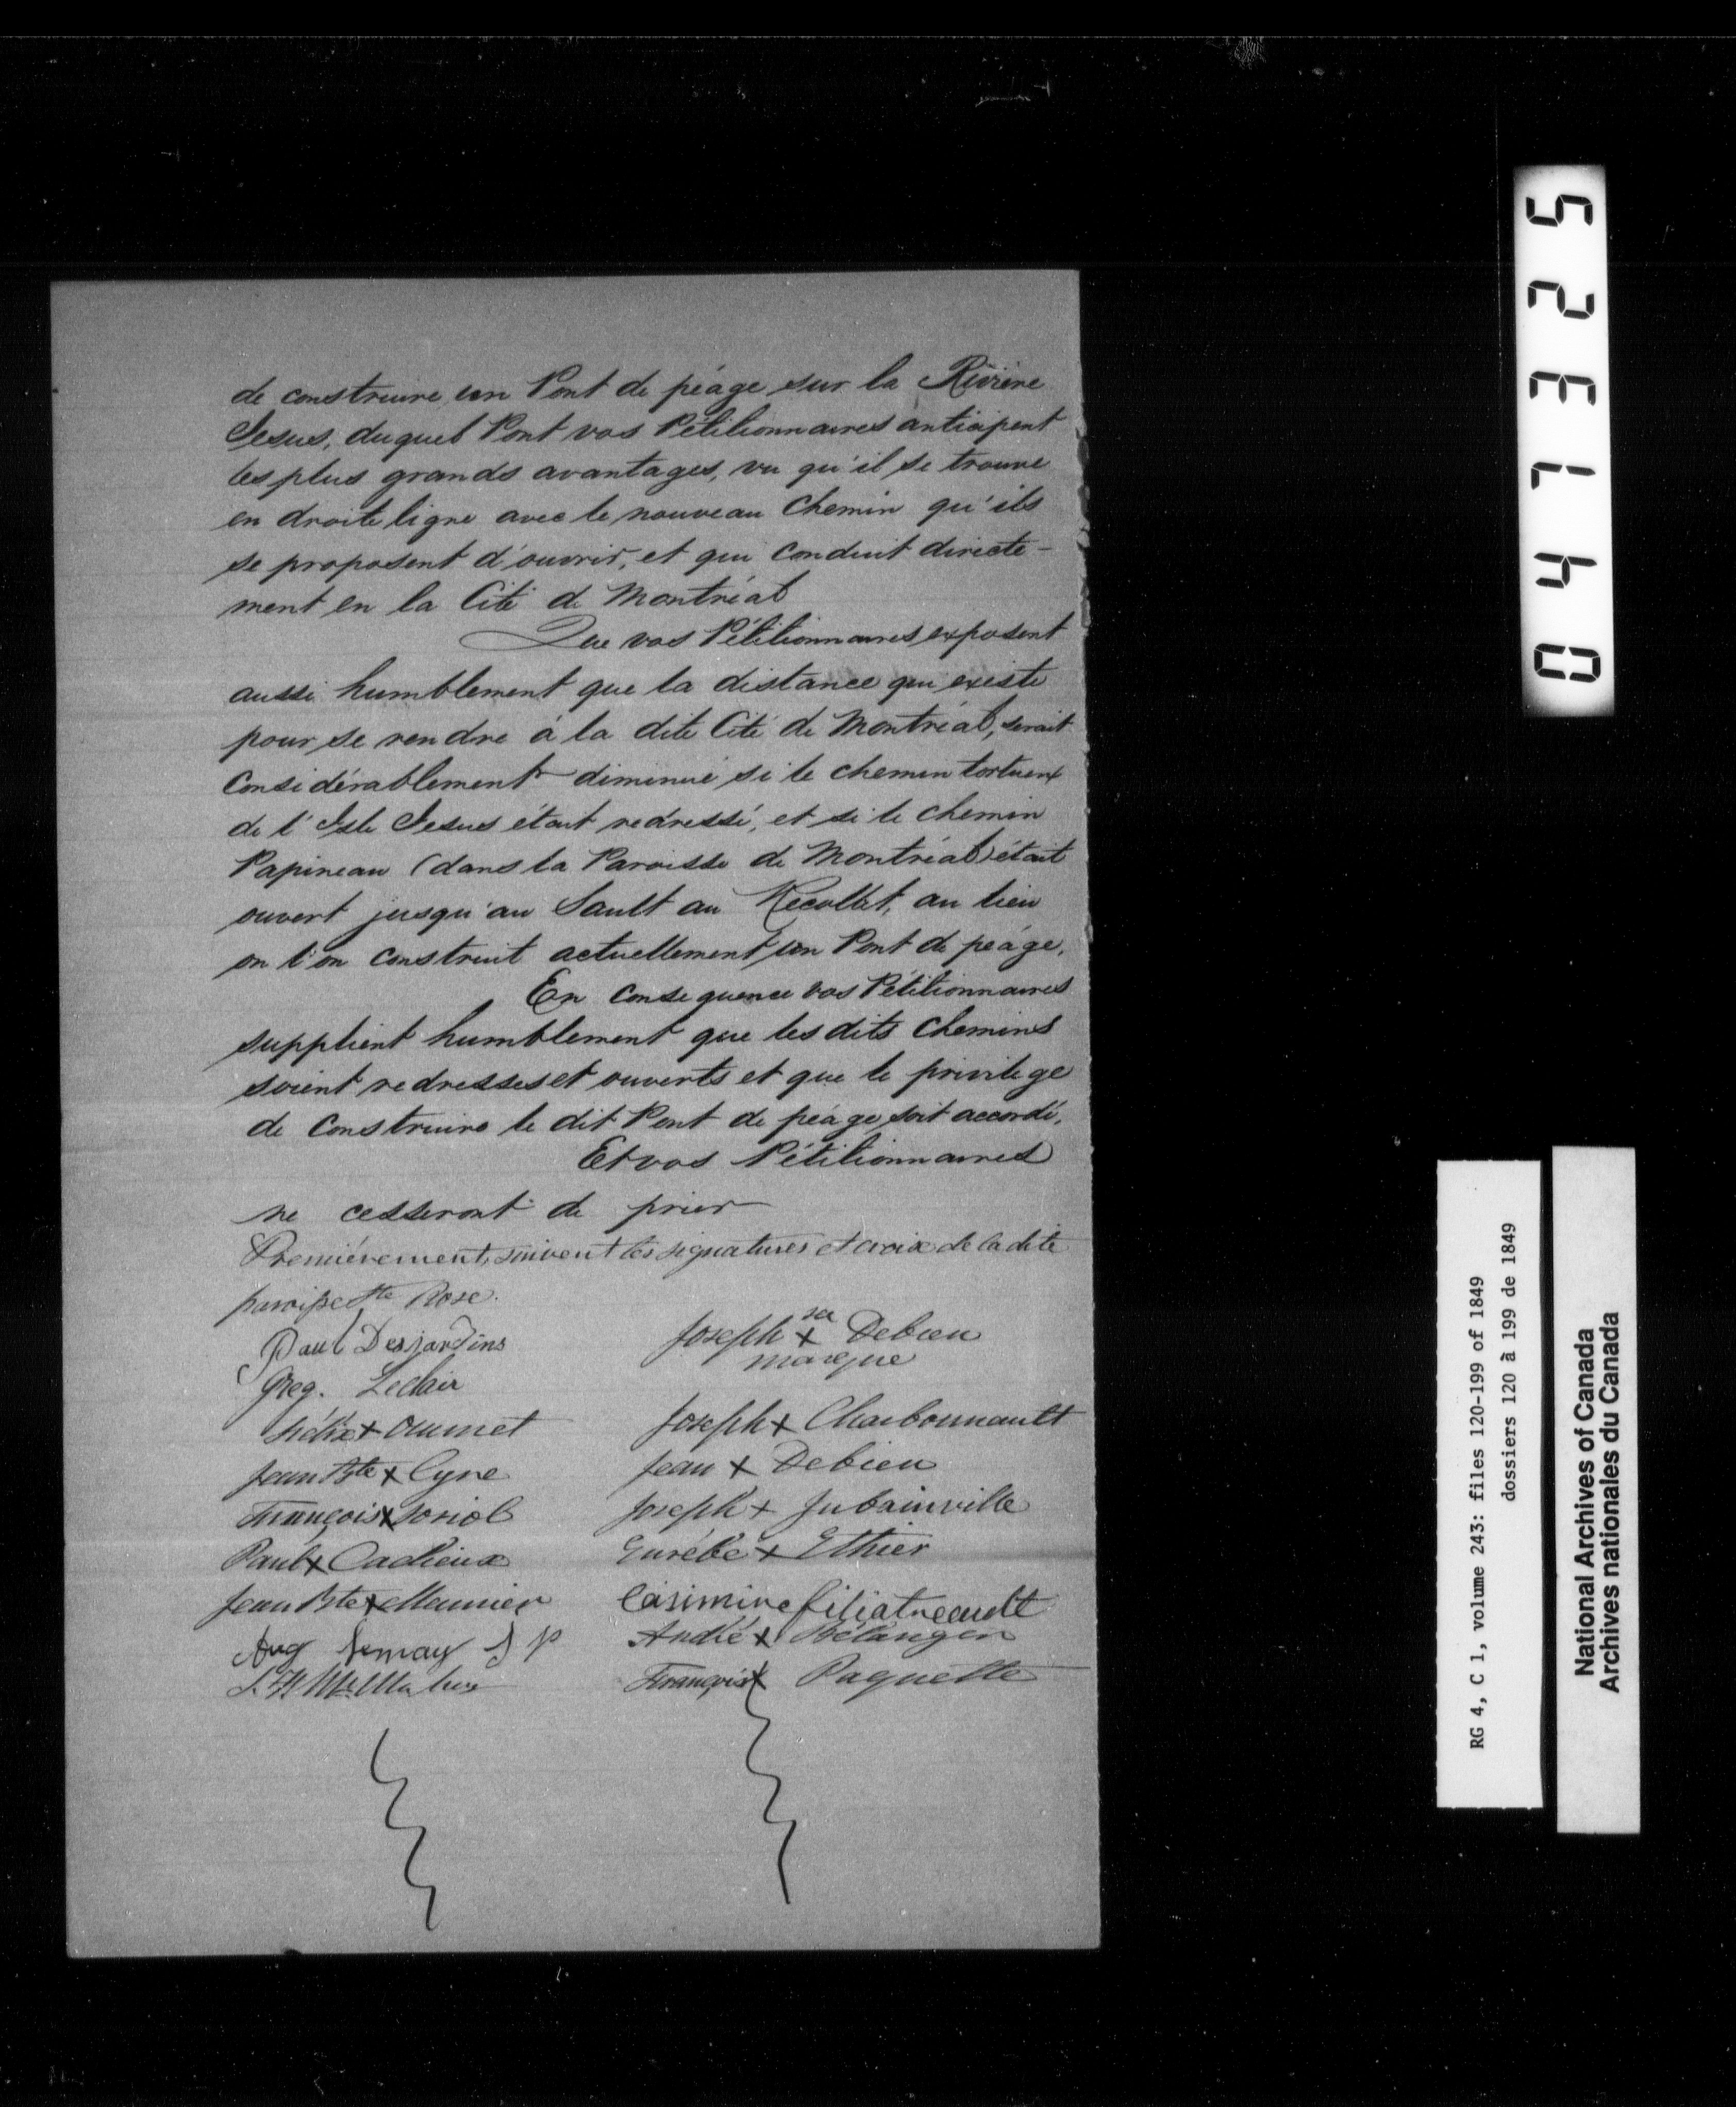 de construire un Pont de péage, sur la Rivière
Jesus, duquel Pont vos Pétitionnaires anticipent
les plus grands avantages, vu qu'il se trouve
en droite ligne avec le nouveau Chemin qu'ils
se proposent d'ouvrir, et qui conduit directe-
ment en la Cité de Montréal
Que vos Pétitionnaires exposent
aussi humblement que la distance qui existe
pour se rendre à la dite Cité de Montréal, serait
Considérablement diminué si le chemin tortueux
de l'Isle Jesus était redressé, et si le chemin
Papineau (dans la Paroisse de Montréal) était
ouvert jusqu'au Sault au Recollet, au lieu
ou l'on construit actuellement un Pont de péage.
En Consequence vos Pétitionnaires
supplient humblement que les dits Chemins
soient redresses et ouverts et que le privilege
de Construire le dit Pont de péage, soit accordé.
Et vos Pétitionnaires
ne cesseront de prier
Premièrement, suivent les signatures et croix de la dite
paroisse Ste Rose.
Paul Desjardins
Greg. Leclair
+ Ouimet
Jean Bte + Cyre
François + Soriol
Paul + Cadieux
Jean Bte + Meunier
Aug Lemay J P
Joseph sa + Debien
marque
Joseph + Charbonnault
Jean + Debien
Joseph + Jubainville
Eusébe + Ethier
Casimire filiatreault
André + Bélanger
François + Paquette
041325
RG 4, C 1, volume 243: files 120-199 of 1849
dossiers 120 à 199 de 1849
National Archives of Canada
Archives nationales du Canada